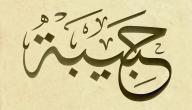 حَبِيبَةُ